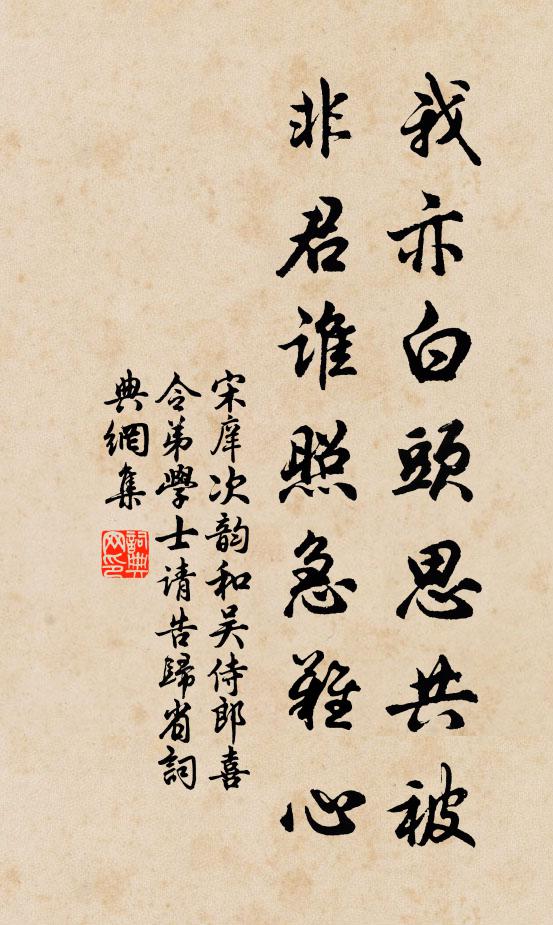 我亦白頭思共被
非君誰照急難心
宋庠次韵和吴侍郎喜
令弟學士请告歸省詞
典網集
詞典网印